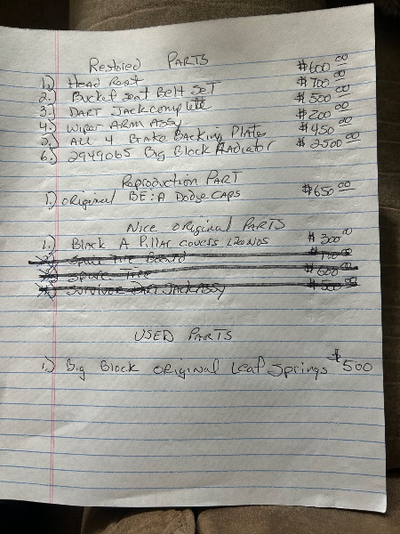 Restored PARTS
1.) Head Rest $600.00
2.) Bucket Seat Belt Set $700.00
3.) DART Jack complete $500.00
4.) Wiper ARM Assy $200.00
5.) All 4 Brake Backing Plate $450.00
6.) 2949065 Big Block RAdiator $2500.00
Reproduction PART
1.) original BE:A Dodge CAPS $650.00
Nice original PARTS
1.) Black A Pillar covers $300.00
Spare Tire $600.00
Survivor Dart Jack Assy $500.00
USED PARTS
1.) Big Block original Leaf Springs $500